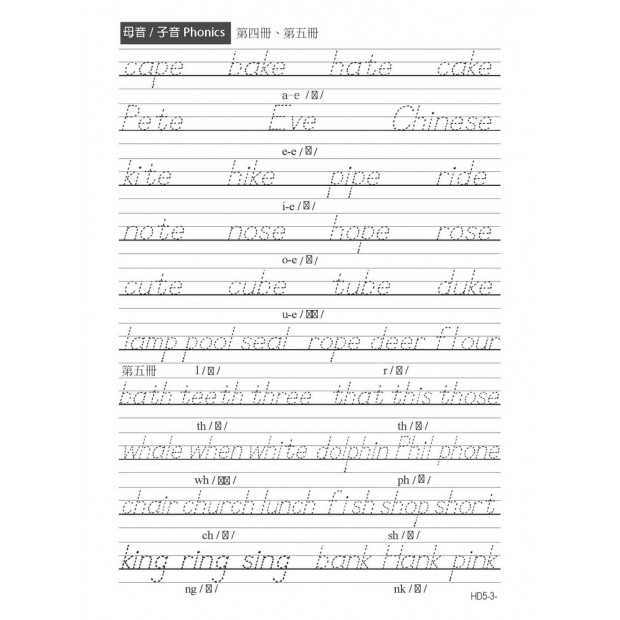 母音 / 子音 Phonics 第四冊、第五冊
cape bake hate cake
a-e /☒/
Pete Eve Chinese
e-e /☒/
kite hike pipe ride
i-e /☒/
note nose hope rose
o-e /☒/
cute cube tube duke
u-e /☒☒/
lamp pool seal rope deer flour
第五冊 l /☒/ r /☒/
bath teeth three that this those
th /☒/ th /☒/
whale when white dolphin Phil phone
wh /☒☒/ ph /☒/
chair church lunch fish shop short
ch /☒/ sh /☒/
king ring sing bank Hank pink
ng /☒/ nk /☒/
HD5-3-